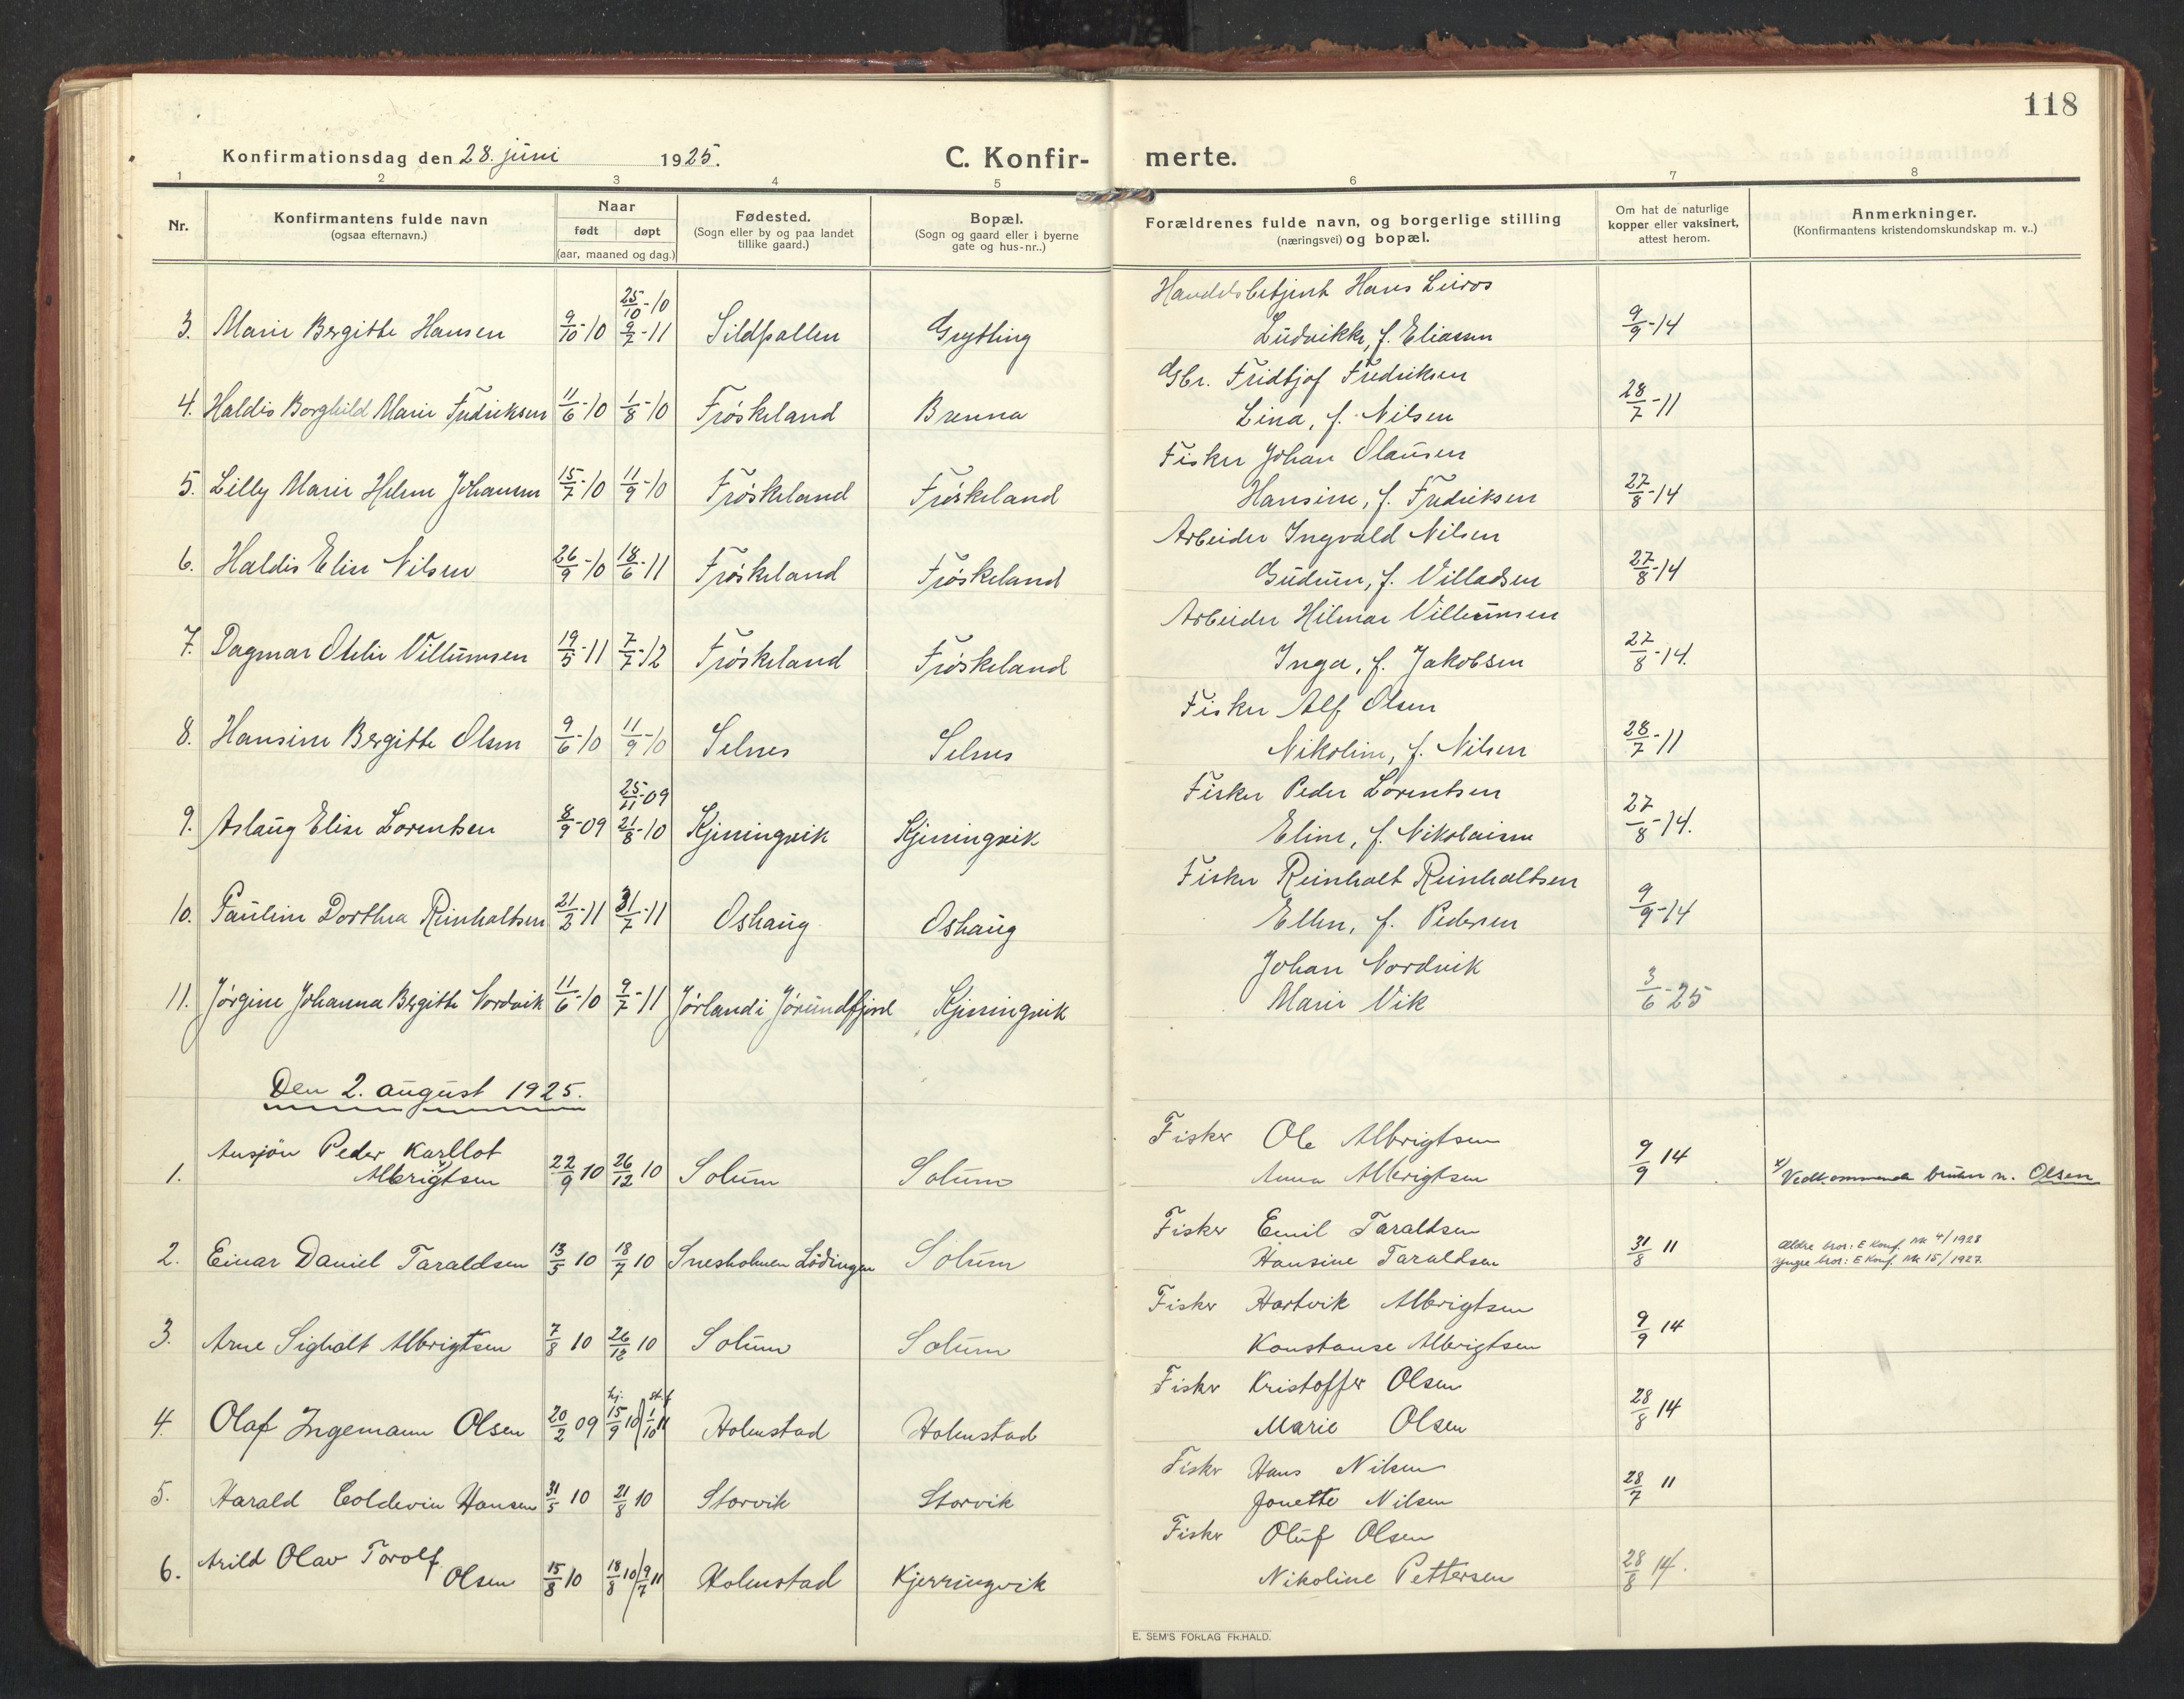 118
Konfirmationsdag den 28. juni 1925. C. Konfirmerte.
1 2 3 4 5 6 7 8
Nr. Konfirmantens fulde navn (ogsaa efternavn.) Naar født døpt (aar, maaned og dag.) Fødested. (Sogn eller by og paa landet tillike gaard.) Bopæl. (Sogn og gaard eller i byerne gate og hus-nr..) Forældrenes fulde navn, og borgerlige stilling (næringsvei) og bopæl. Om hat de naturlige kopper eller vaksinert, attest herom. Anmerkninger. (Konfirmantens kristendomskundskap m. v..)
25/10-10 Handelsbetjent Hans
3. Marie Bergitte Hansen 9/10-10 9/7-11 Sildpollen Grytting Ludvikke, f. Eliassen 9/9-14
Gbr. Fridtjof Fredriksen
4. Haldis Borghild Marie Fredriksen 11/6-10 1/8-10 Frøskeland Brenna Lina, f. Nilsen 28/7-11
Fisker Johan Olausen
5. Lilly Marie Helene Johansen 15/7-10 11/9-10 Frøskeland Frøskeland Hansine, f. Fredriksen 27/8-14
Arbeider Ingvald Nilsen
6. Haldis Elise Nilsen 26/9-10 18/6-11 Frøskeland Frøskeland Gudrun, f. Villadsen 27/8-14
Arbeider Hilmar Villumsen
7. Dagmar Otelie Villumsen 19/5-11 7/7-12 Frøskeland Frøskeland Inga, f. Jakobsen 27/8-14.
Fisker Alf Olsen
8. Hansine Bergitte Olsen 9/6-10 11/9-10 Selnes Selnes Nikoline, f. Nilsen 28/7-11
25/11-09 Fisker Peder Lorentsen
9. Aslaug Elise Lorentsen 8/9-09 21/8-10 Kjerringvik Kjerringvik Eline, f. Nikolaisen 27/8-14.
Fisker Reinholt Reinholtsen
10. Pauline Dorthea Reinholtsen 21/2-11 31/7-11 Oshaug Oshaug Ellen, f. Pedersen 9/9-14
Johan Nordvik
11. Jørgine Johanna Bergitte Nordvik 11/6-10 9/7-11 Jørland i Jørundfjord Kjerringvik Marie Vik 3/6-25
Den 2. august 1925.
Ansjøn Peder Karllot Fisker Ole Albrigtsen
1. Albrigtsen x) 22/9 10 26/12 10 Solum Solum Anna Albrigtsen 9/9 14 x) Vedkommende bruker n. Olsen
Fisker Emil Taraldsen
2. Einar Daniel Taraldsen 13/5 10 18/7 10 Snesholmen Lødingen Solum Hansine Taraldsen 31/8 11 Ældre bror: E Konf. Nr 4/1928
yngre bror: E Konf. Nr 15/1927.
Fisker Hartvik Albrigtsen
3. Arne Sigholt Albrigtsen 7/8 10 26/12 10 Solum Solum Konstanse Albrigtsen 9/9 14
hj. st. f Fisker Kristoffer Olsen
4. Olaf Ingemann Olsen 20/2 09 15/9 10 1/10 11 Holmstad Holmstad Marie Olsen 28/8 14
Fisker Hans Nilsen
5. Harald Coldevin Hansen 31/5 10 21/8 10 Storvik Storvik Jonette Nilsen 28/7 11
Arild Olav Torolf Fisker Oluf Olsen
6. Olsen 15/8 10 18/8 10 9/7 11 Holmstad Kjerringvik Nikoline Pettersen 28/8 14.
E. SEM'S FORLAG FR.HALD.